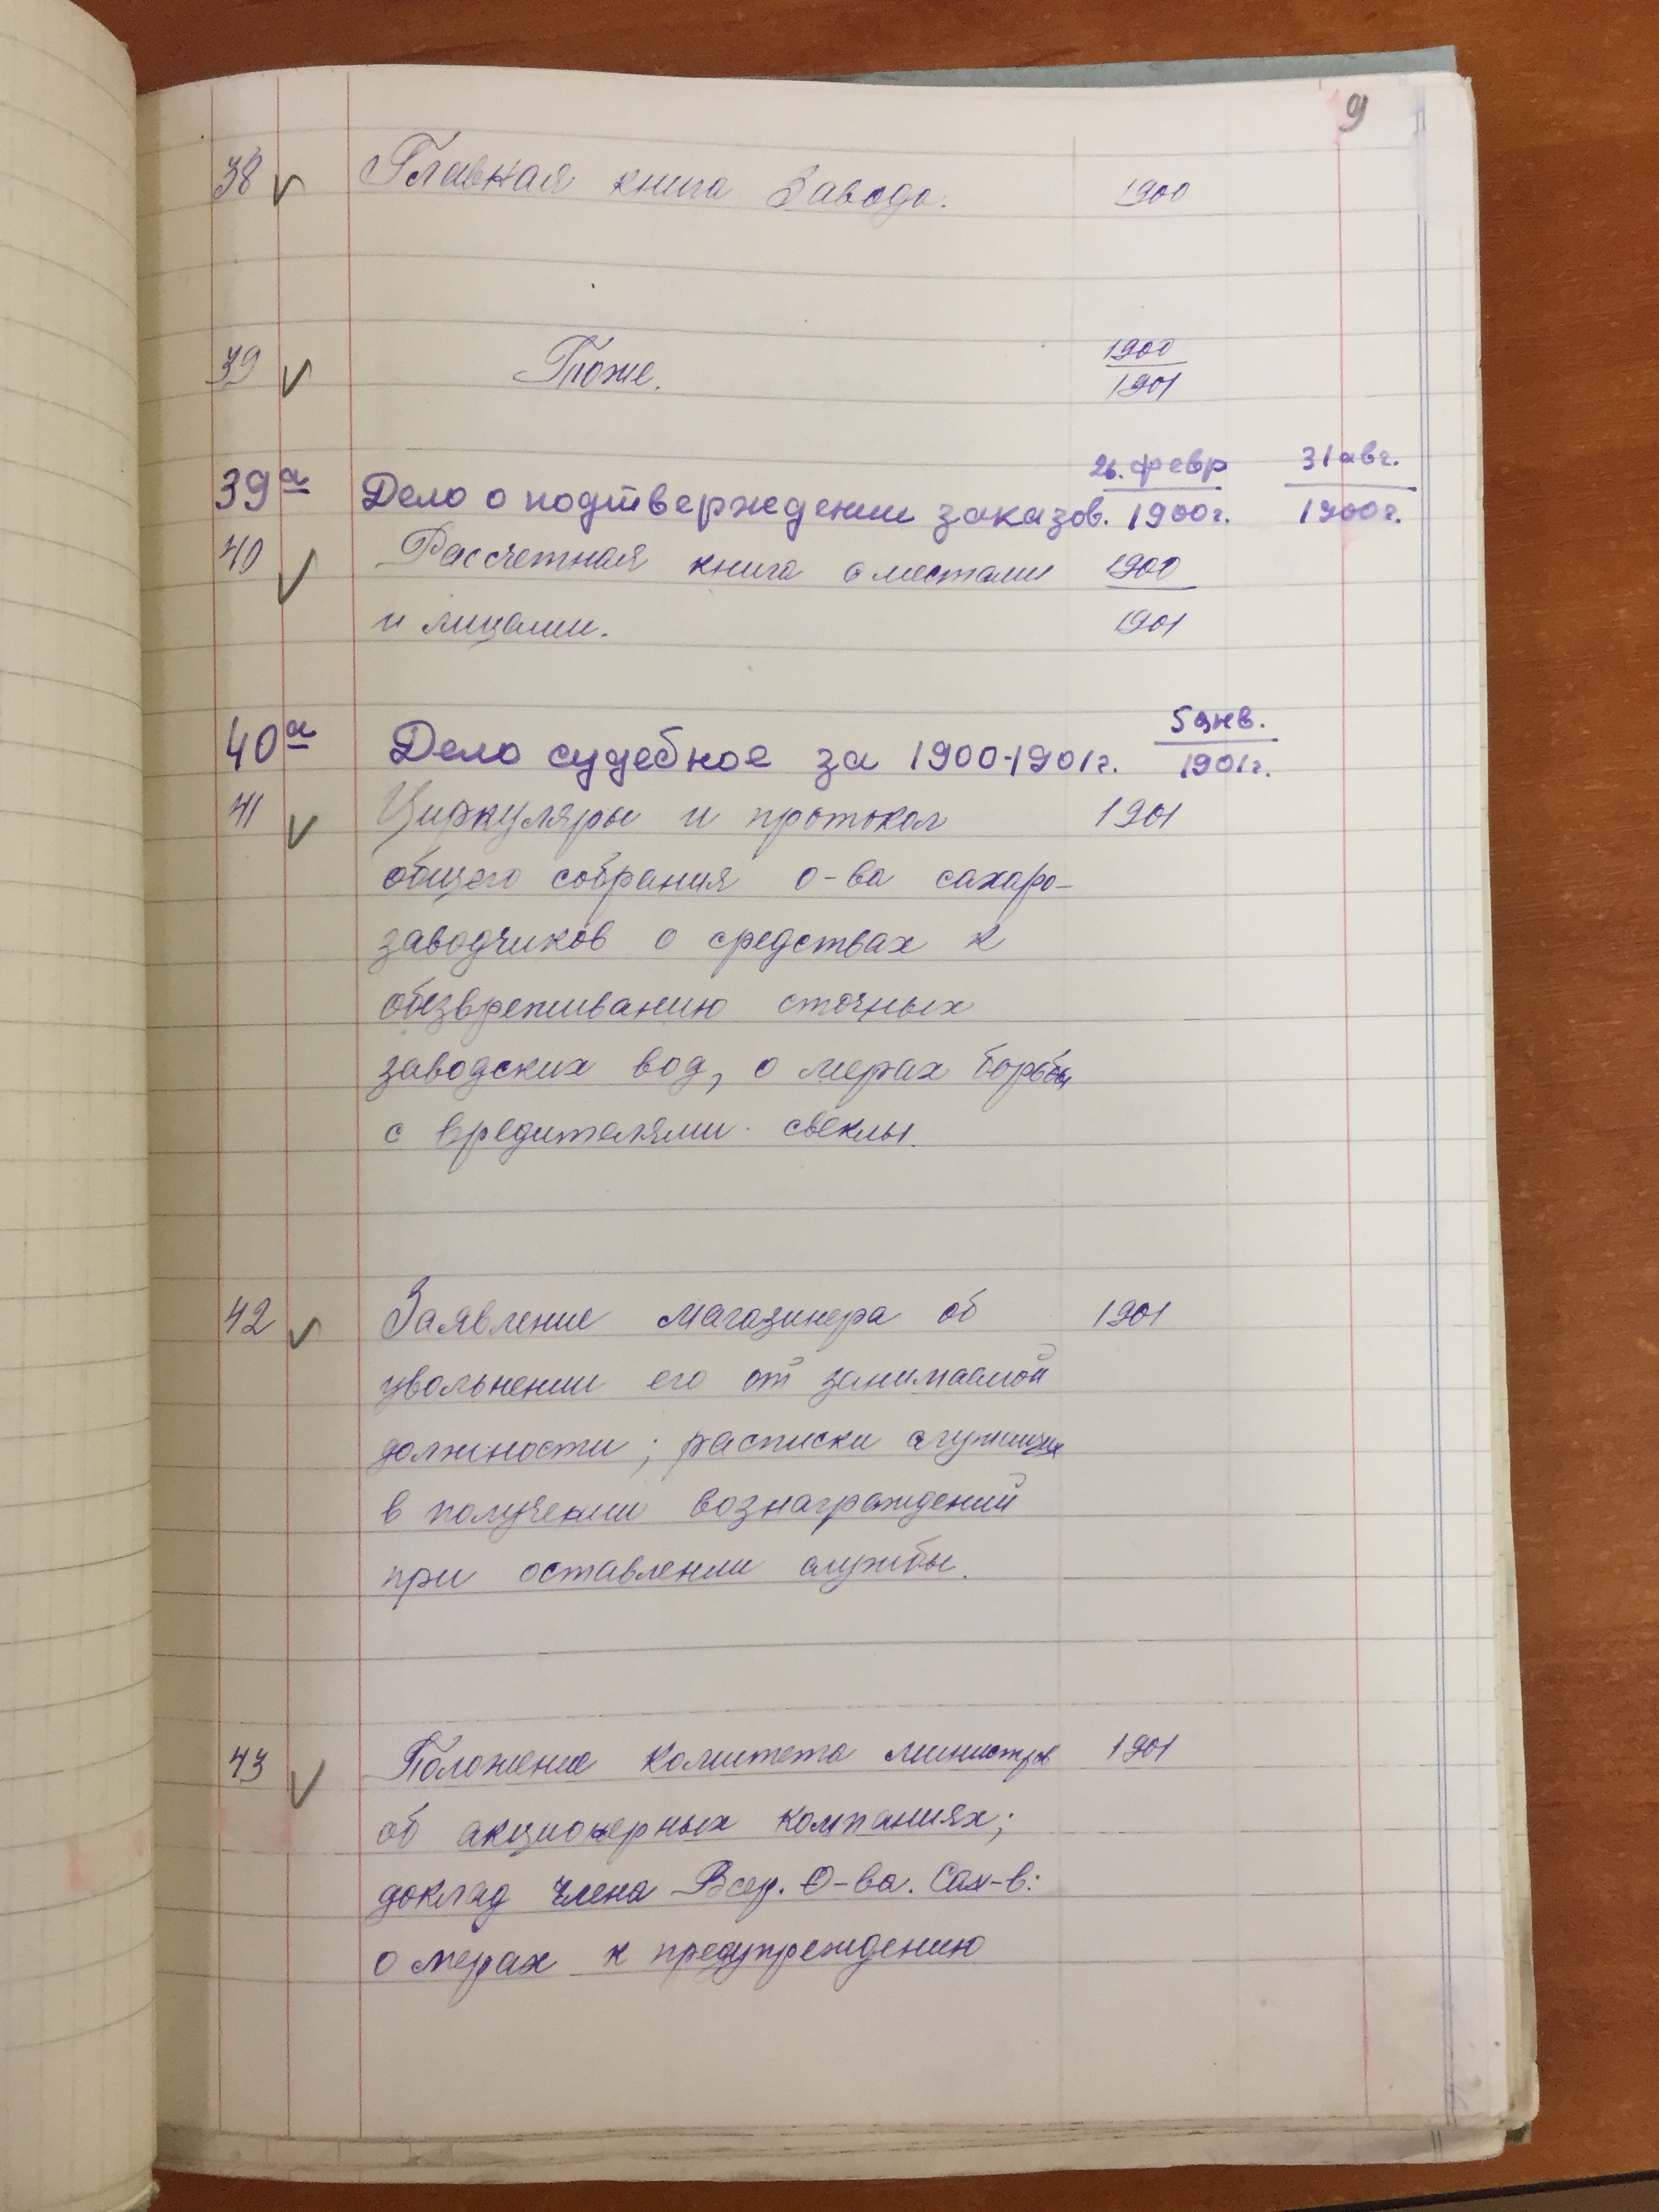 9
38 ✓ Главная книга Завода. 1900
39 ✓ Тоже. 1900
1901
26. февр 31 авг.
39а Дело о подтверждении заказов. 1900г. 1900г.
40 ✓ Рассчетная книга с местами 1900
и лицами. 1901
5 янв.
40а Дело судебное за 1900-1901г. 1901г.
41 ✓ Циркуляры и протокол 1901
общего собрания о-ва сахаро-
заводчиков о средствах к
обезвреживанию сточных
заводских вод, о мерах борьбы
с вредителями свеклы.
42 ✓ Заявление магазинера об 1901
увольнении его от занимаемой
должности; расписки служащих
в получении вознаграждений
при оставлении службы.
43 ✓ Положение Комитета министров 1901
об акционерных компаниях;
доклад члена Всер. О-ва. Сах-в:
о мерах к предупреждению